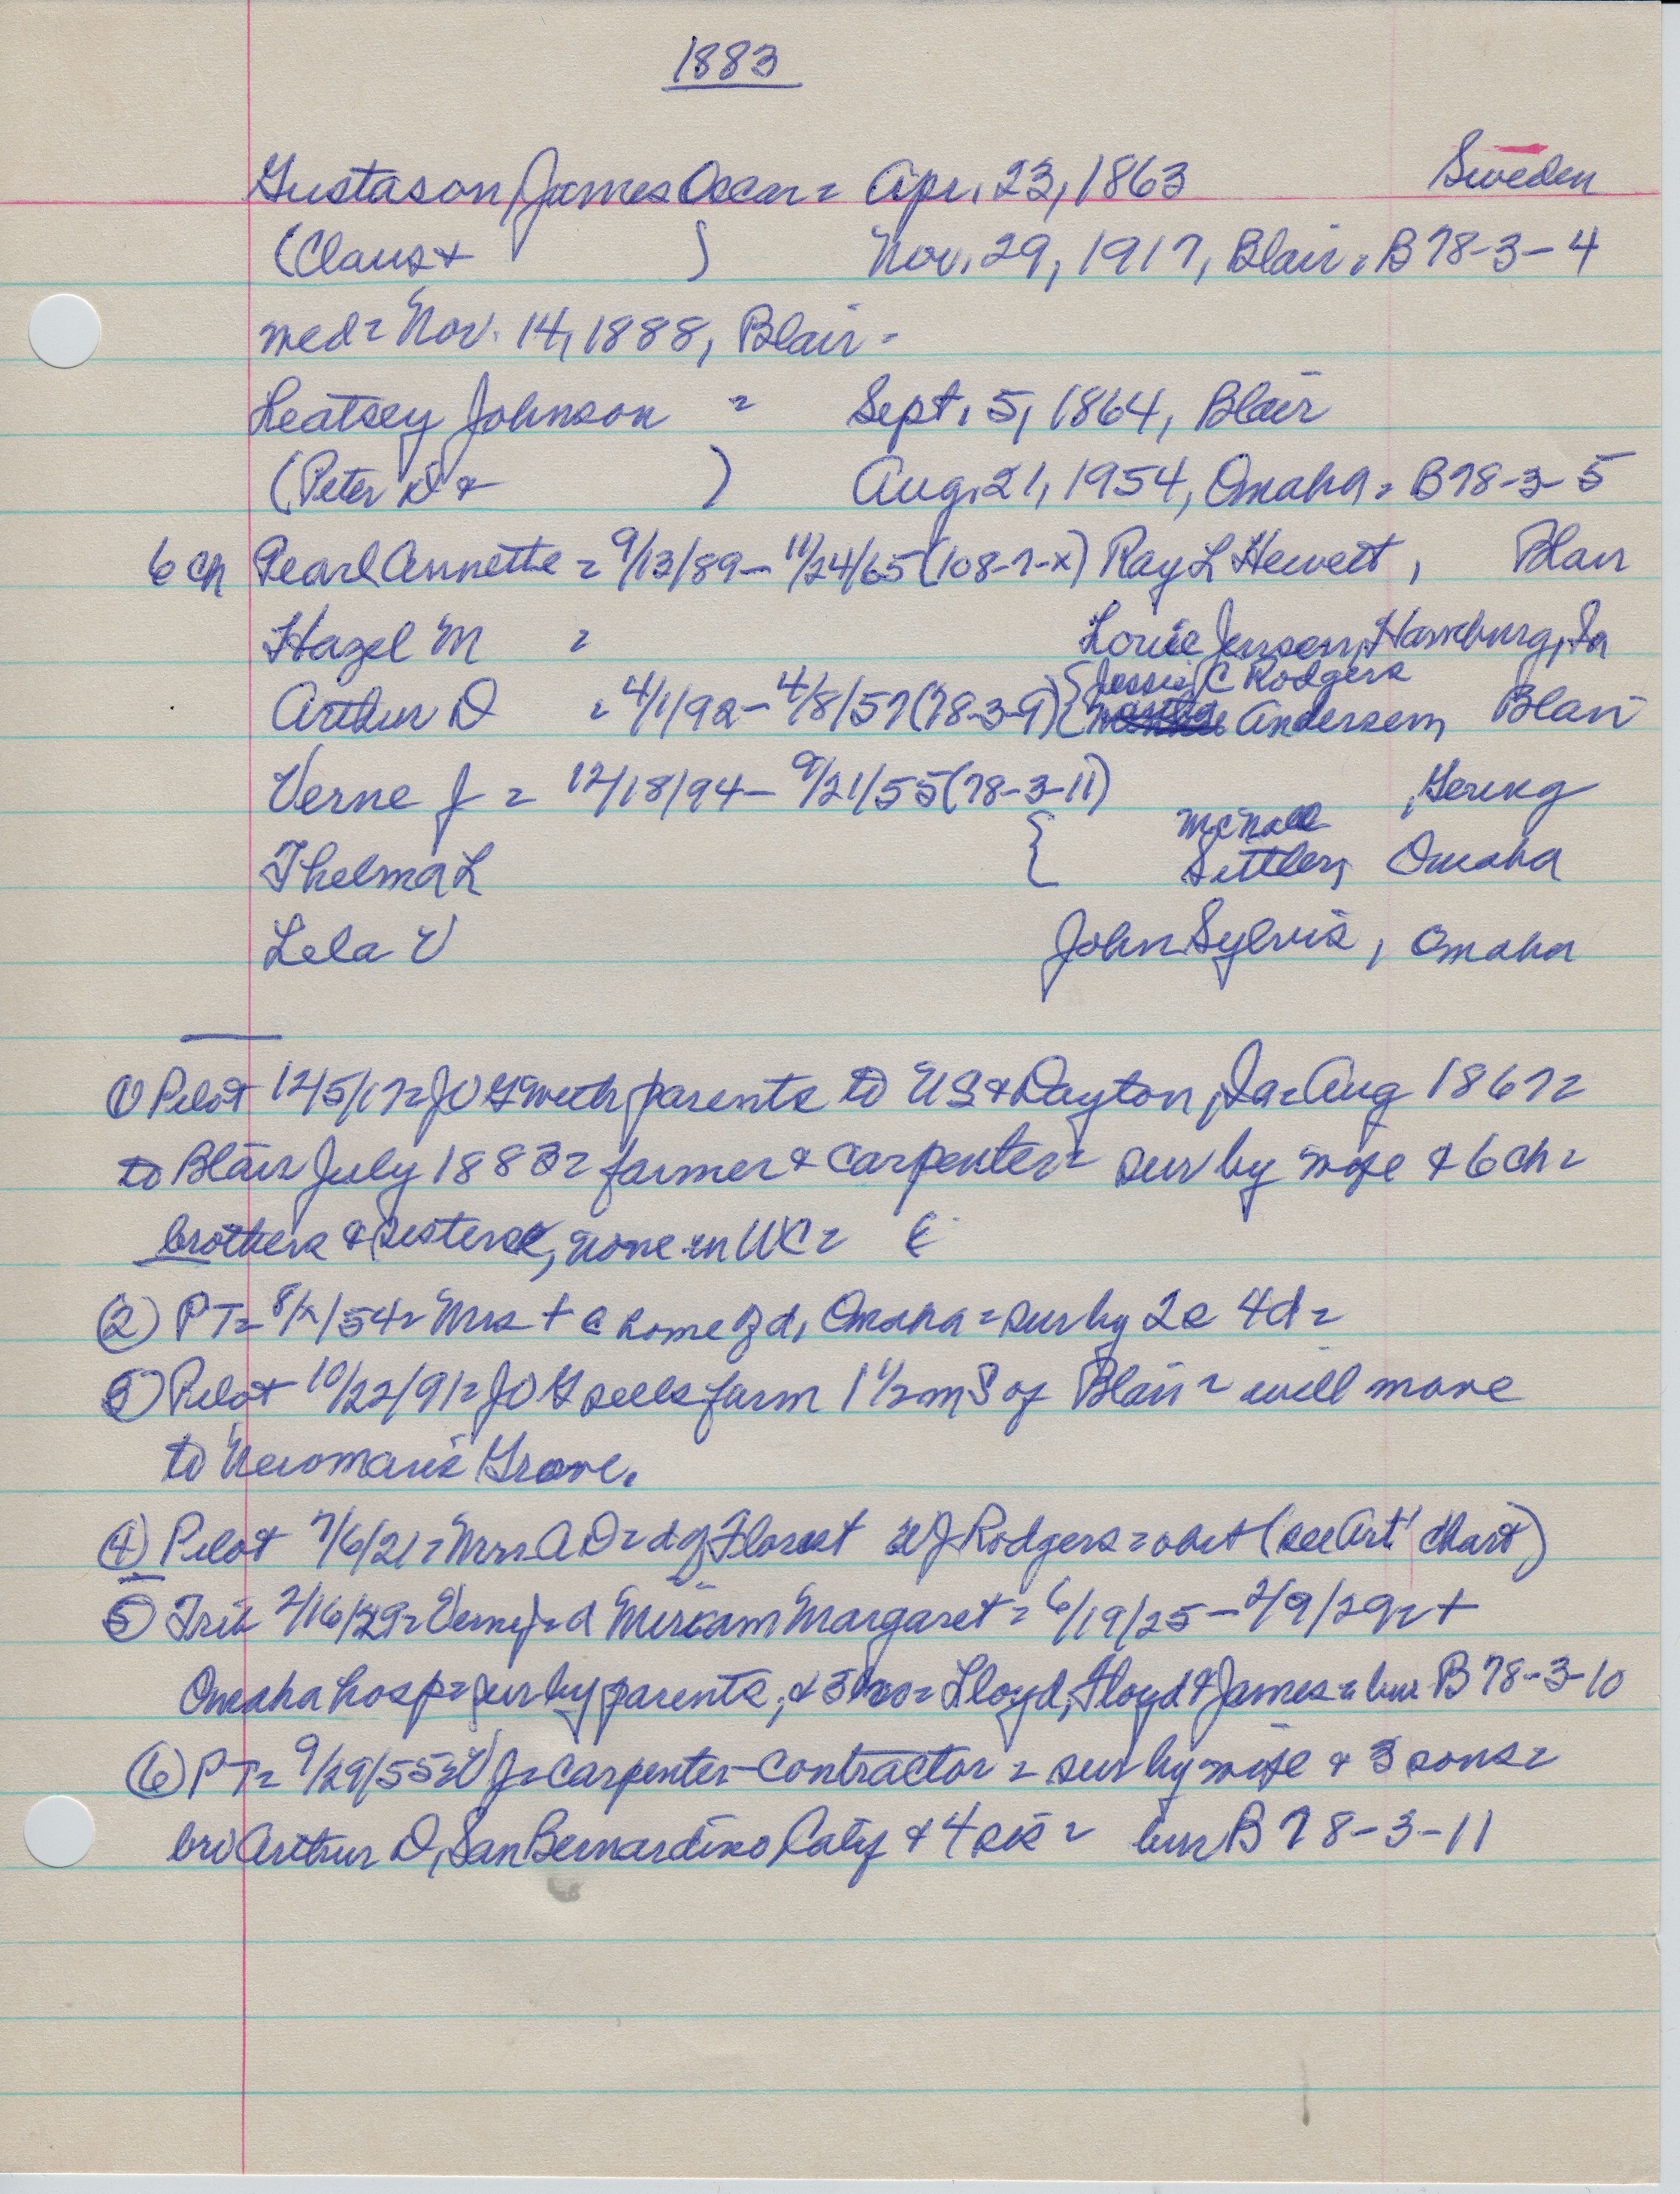 1883
Gustason James Oscar = Apr. 23, 1863 Sweden
(Claus + ) Nov. 29, 1917, Blair = B78-3-4
med = Nov. 14, 1888, Blair =
Leatsey Johnson = Sept. 5, 1864, Blair
(Peter D + ) Aug. 21, 1954, Omaha = B78-3-5
6 ch Pearl Annette = 9/13/89 - 11/24/65 (108-7-x) Ray L Hewett, Blair
Hazel M = Louie Jensen, Hamburg, Ia
Jessie C Rodgers
Arthur D = 4/1/92 - 4/8/57 (78-3-9) { Andersen, Blair
Verne J = 12/18/94 - 9/21/55 (78-3-11) , Gering
McNall
Thelma L { Sittler, Omaha
Lela V John Sylvis, Omaha
① Pilot 12/5/17 = JOG with parents to US & Dayton, Ia = Aug 1867 =
to Blair July 1883 = farmer & carpenter = sur by wife & 6 ch =
brothers & sisters, none in WC =
② PT = 8/ /54 = Mrs + @ home of d, Omaha = sur by 2s 4d =
③ Pilot 10/22/91 = JOG sells farm 1 1/2 m S of Blair = will move
to Newman's Grove.
④ Pilot 7/6/21 = Mrs A D = d of Mrs W J Rodgers = obit (see Art' chart)
⑤ Trib 2/16/29 = Verne J = d Miriam Margaret = 6/19/25 - 2/9/29 = +
Omaha hosp = sur by parents, & 3 bro = Lloyd, Floyd & James = bur B 78-3-10
⑥ PT = 9/29/55 = V J = carpenter-contractor = sur by wife & 3 sons =
bro Arthur D, San Bernardino Calif & 4 sis = bur B 78-3-11